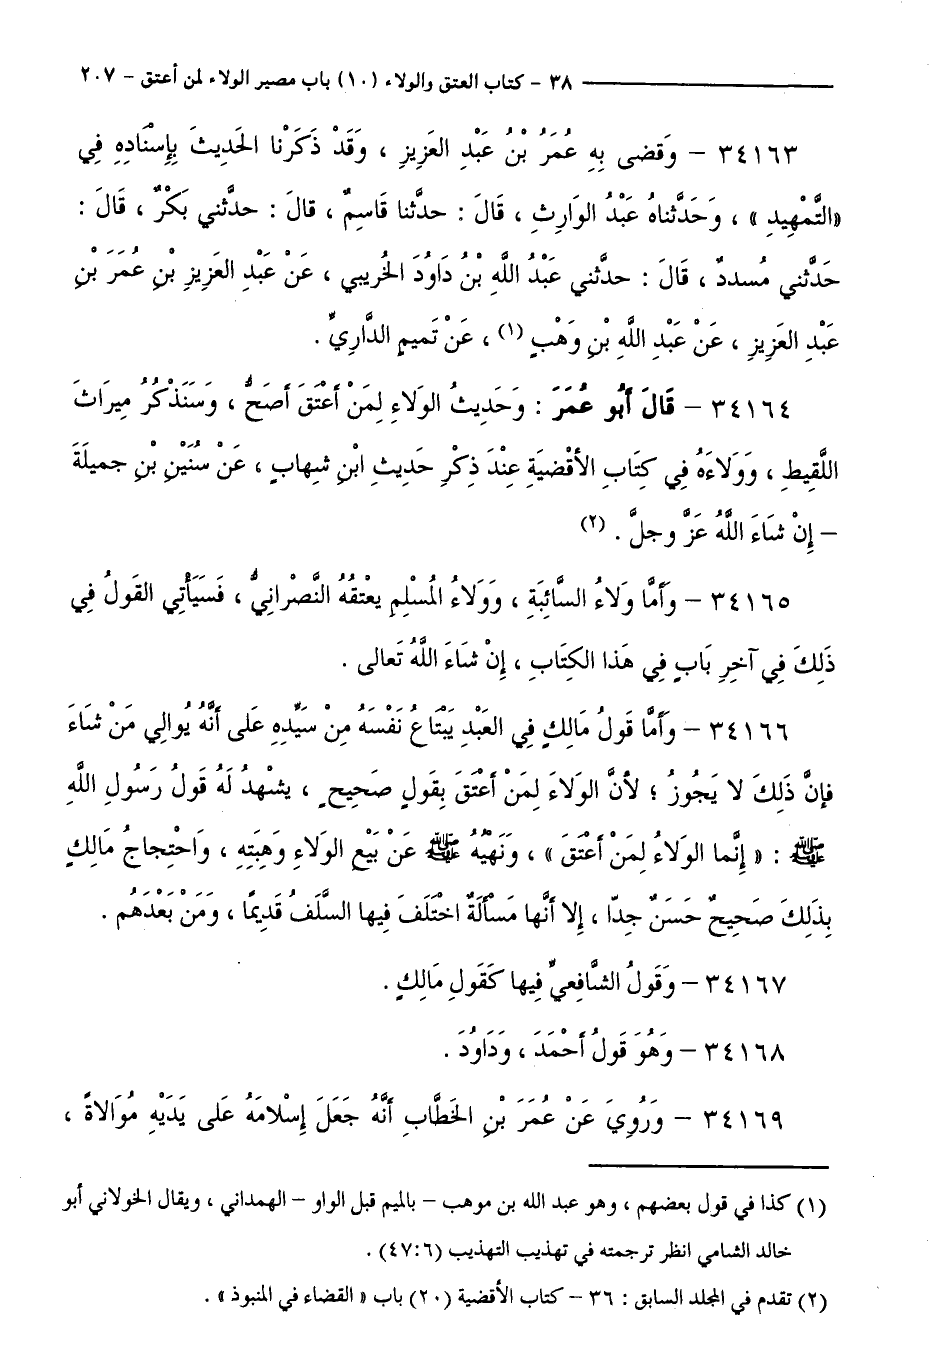 ٣٨ - كتاب العتق والولاء (١٠) باب مصير الولاء لمن أعتق - ٢٠٧
٣٤١٦٣ - وَقضى بِهِ عُمَرُ بْنُ عَبْدِ العَزِيزِ ، وَقَدْ ذَكَرْنا الحَدِيثَ بِإِسْنَادِهِ فِي
«التَّمْهِيدِ» ، وَحَدَّثناهُ عَبْدُ الوَارِثِ ، قَالَ : حدَّثنا قَاسِمٌ ، قالَ : حدَّثني بَكْرٌ ، قَالَ :
حَدَّثني مُسددٌ ، قَالَ : حدَّثني عَبْدُ اللَّهِ بْنُ دَاوُدَ الخُريبي ، عَنْ عَبْدِ العَزِيزِ بْنِ عُمَرَ بْنِ
عَبْدِ العَزِيزِ ، عَنْ عَبْدِ اللَّهِ بْنِ وَهْبٍ (١) ، عَنْ تَميمٍ الدَّارِيِّ .
٣٤١٦٤ - قَالَ أَبُو عُمَرَ : وَحَدِيثُ الوَلاءِ لِمَنْ أَعْتَقَ أَصَحُّ ، وَسَنَذْكُرُ مِيرَاثَ
اللَّقِيطِ ، وَوَلاءَهُ فِي كِتَابِ الأقْضِيَةِ عِنْدَ ذِكْرِ حَدِيثِ ابْنِ شِهابٍ ، عَنْ سُنَيْنِ بْنِ جميلَةَ
– إِنْ شَاءَ اللَّهُ عَزَّ وجلَّ . (٢)
٣٤١٦٥ - وَأَمَّا وَلاءُ السَّائِبَةِ ، وَوَلاءُ المُسْلِمِ يعْتقُهُ النَّصْرانِيُّ ، فَسَيَأْتِي القَولُ فِي
ذَلِكَ فِي آخِرِ بَابٍ فِي هَذا الكِتَابِ ، إِنْ شَاءَ اللَّهُ تَعالى .
٣٤١٦٦ - وَأَمَّا قَولُ مَالِكٍ فِي العَبْدِ يَبْتَاعُ نَفْسَهُ مِنْ سَيِّدِهِ عَلى أَنَّهُ يُوالِي مَنْ شَاءَ
فإنَّ ذَلِكَ لا يَجُوزُ ؛ لأنَّ الوَلاءَ لِمَنْ أَعْتَقَ بِقَولٍ صَحِيحٍ ، يشْهدُ لَهُ قَولُ رَسُولِ اللَّهِ
ﷺ : « إِنَّما الوَلاءُ لِمَنْ أَعْتَقَ » ، وَنَهْيُهُ ﷺ عَنْ بَيْعِ الوَلاءِ وَهِبَتِهِ ، وَاحْتِجاجُ مَالِكٍ
بِذَلِكَ صَحِيحٌ حَسَنٌ جِدّا ، إِلا أَنَّها مَسْأَلَةٌ اخْتَلَفَ فِيها السَّلَفُ قَدِيمًا ، وَمَنْ بَعْدَهُم .
٣٤١٦٧ - وَقَولُ الشَّافِعيِّ فِيها كَقَولِ مَالِكٍ .
٣٤١٦٨ - وَهُوَ قَولُ أَحْمَدَ ، وَدَاوُدَ .
٣٤١٦٩ - وَرُوِيَ عَنْ عُمَرَ بْنِ الخَطَّابِ أَنَّهُ جَعَلَ إِسْلامَهُ عَلى يَدَيْهِ مُوَالاةً ،
(١) كذا في قول بعضهم ، وهو عبد الله بن موهب – بالميم قبل الواو – الهمداني ، ويقال الخولاني أبو
خالد الشامي انظر ترجمته في تهذيب التهذيب (٤٧:٦) .
(٢) تقدم في المجلد السابق : ٣٦ – كتاب الأقضية (٢٠) باب « القضاء في المنبوذ » .